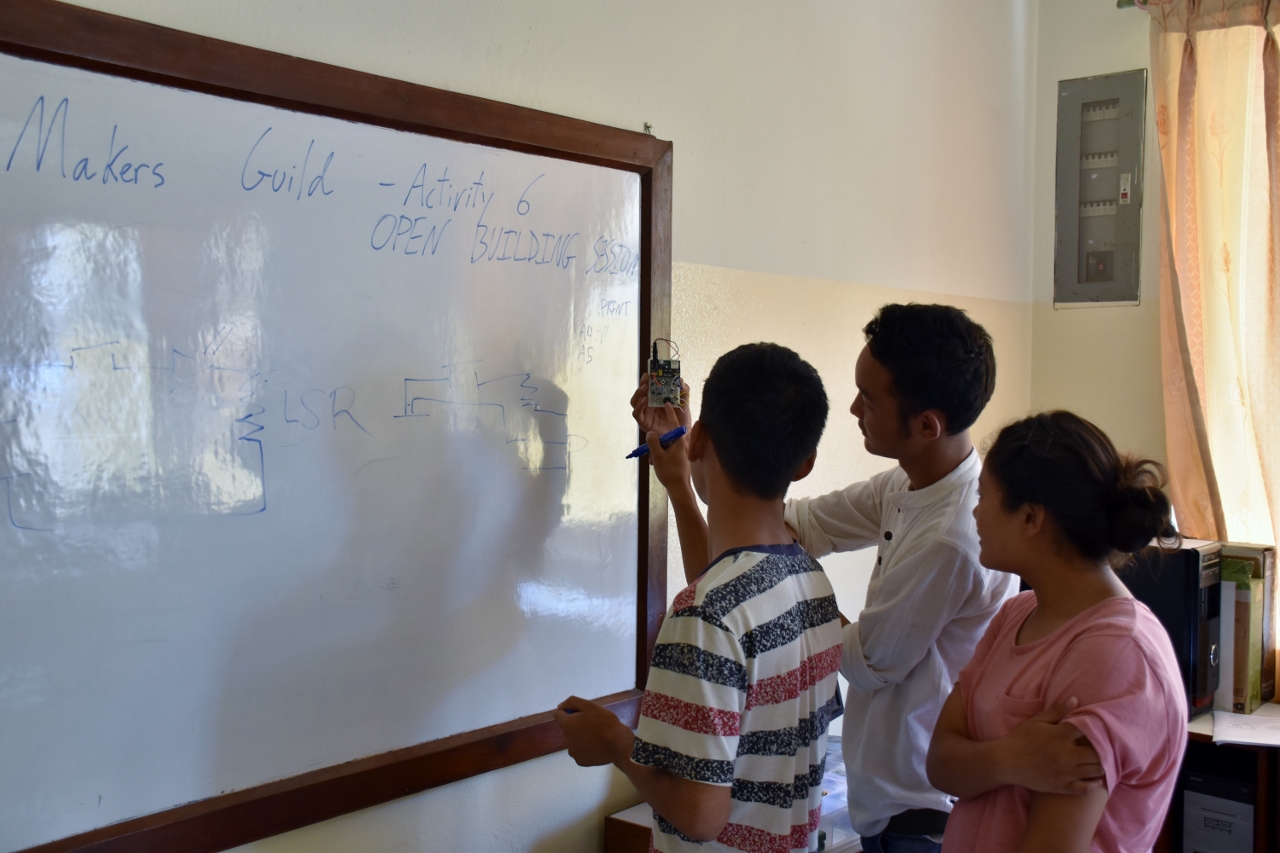 Makers Guild - Activity 6
OPEN BUILDING SESSION
PRINT
A4
A5
LSR